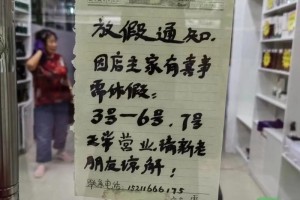 放假通知.
因店主家有喜事
需休假:
3号—6号.7号
正常营业请新老
朋友谅解!
联系电话 15211666175